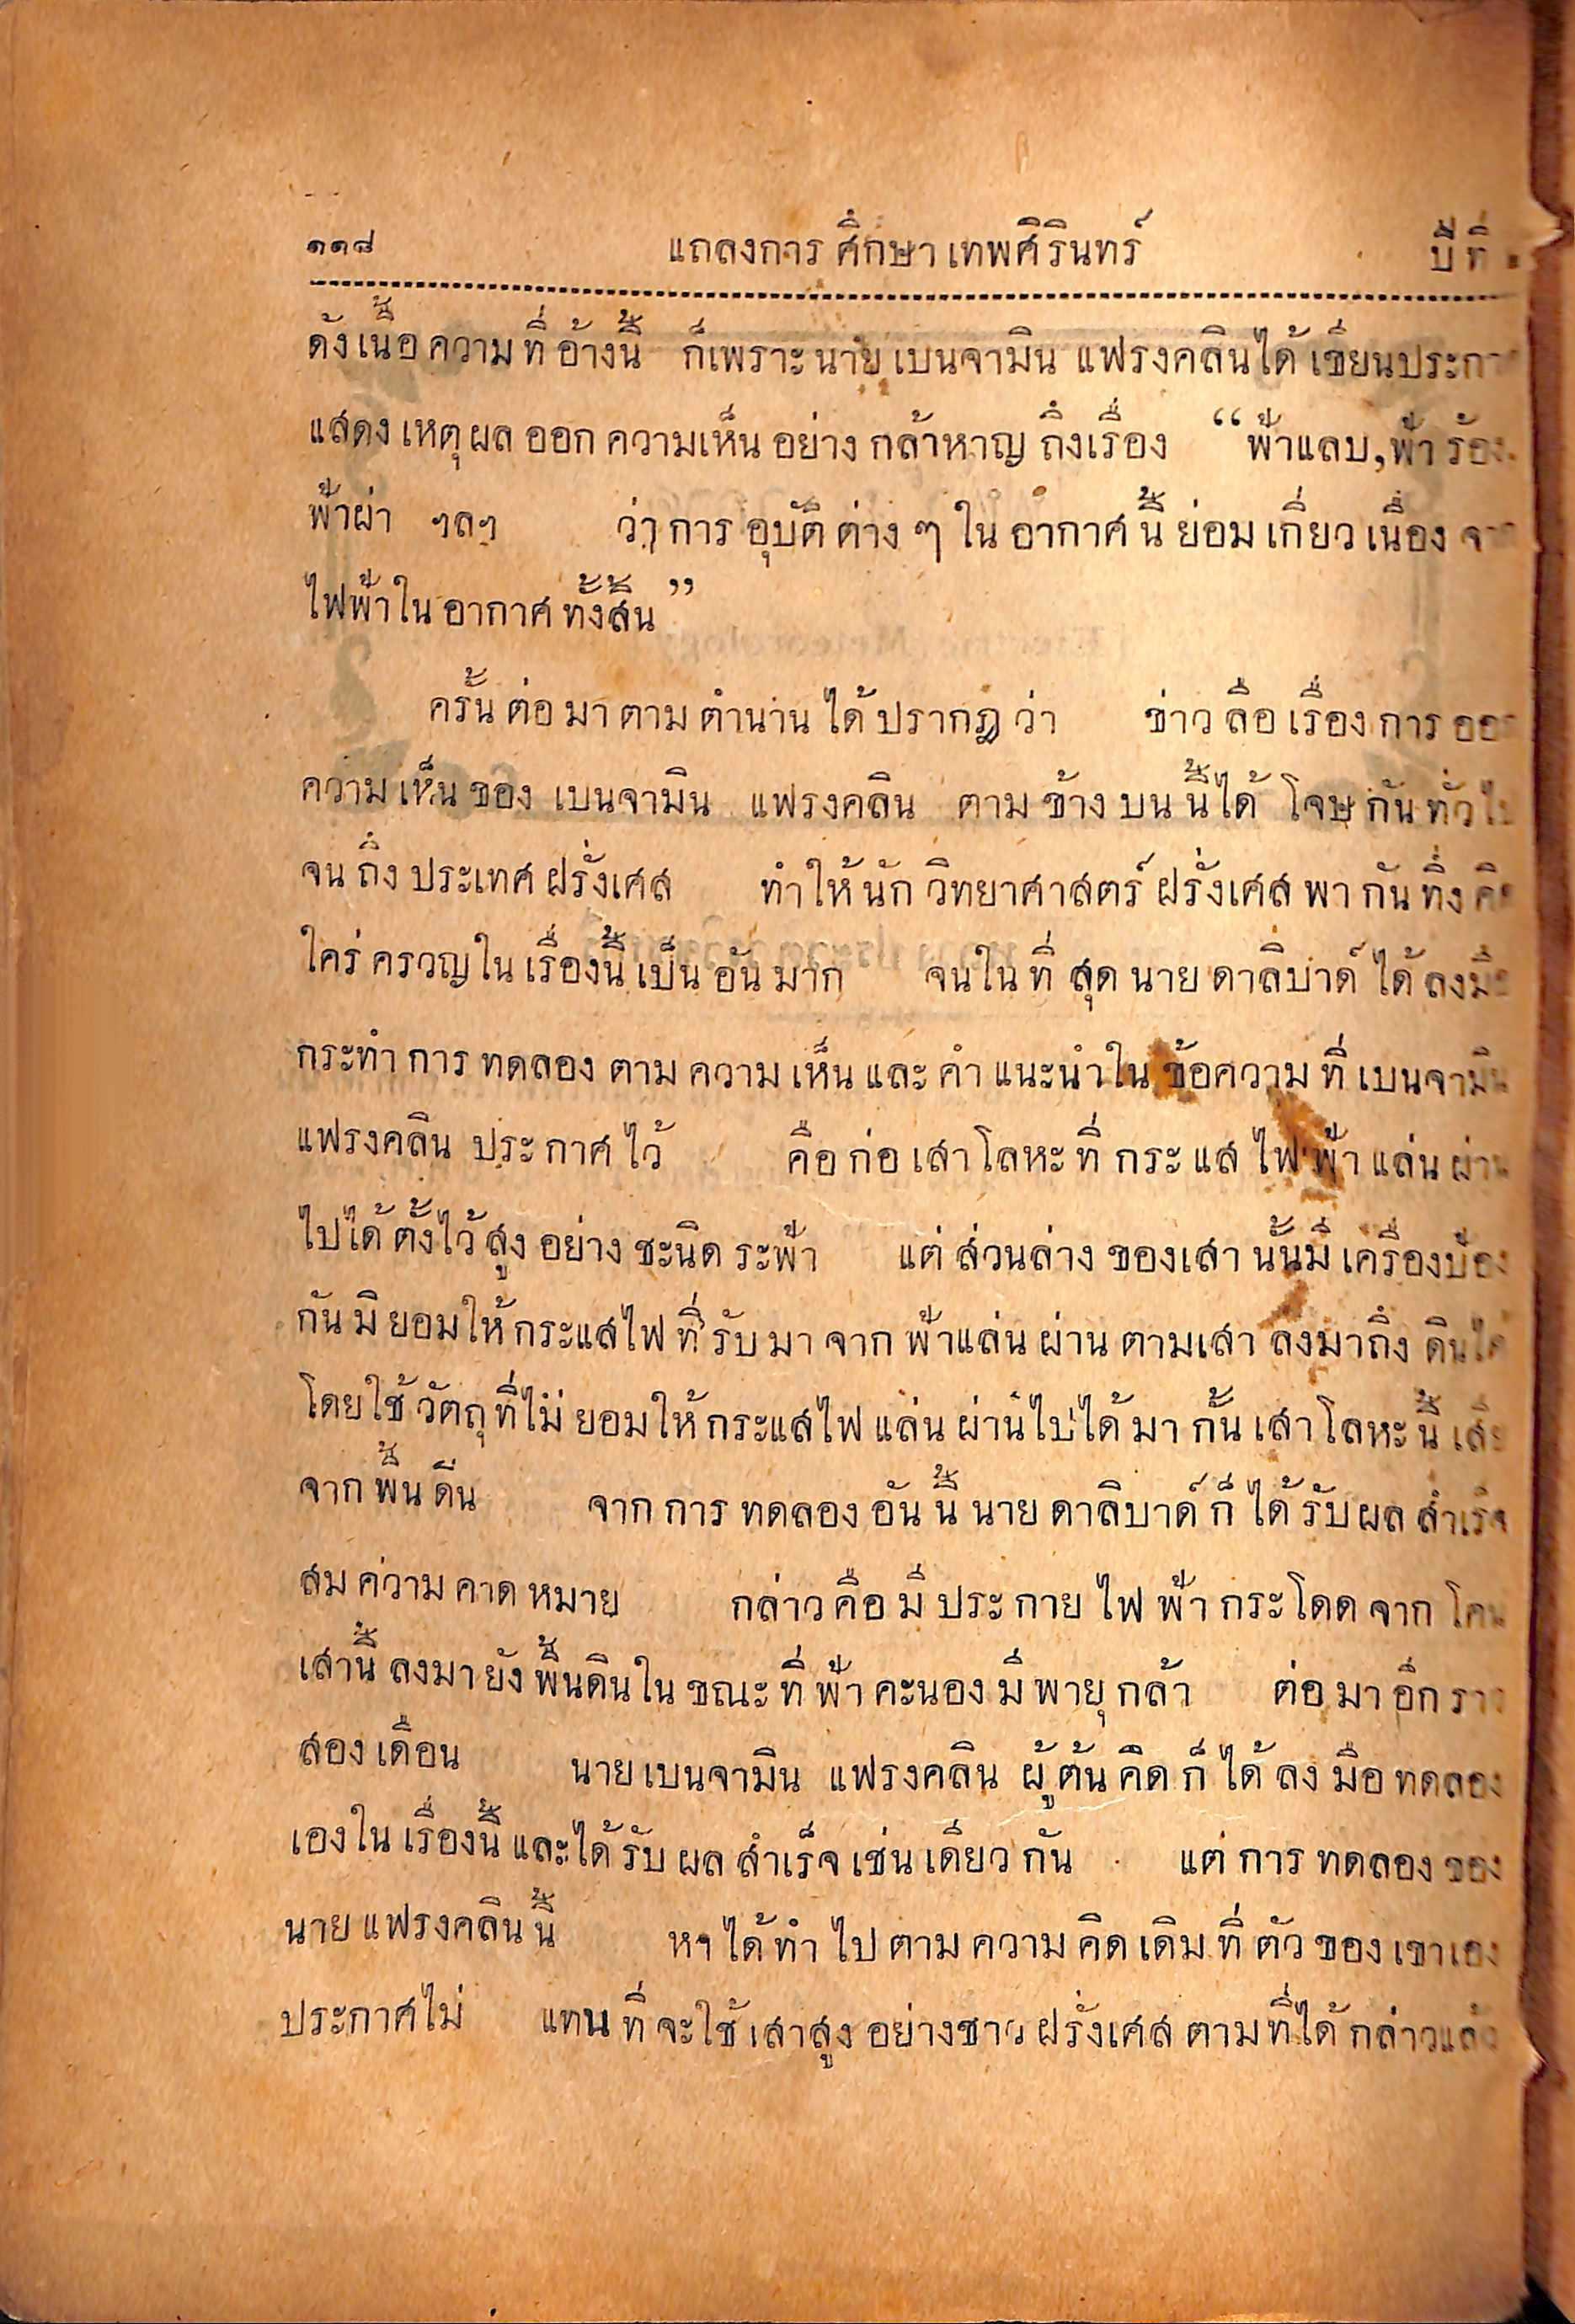 ๑๑๘ แถลงการศึกษาเทพศิรินทร์ ปีที่
ดังเนื้อความที่อ้างนี้ ก็เพราะนายเบนจามิน แฟรงคลินได้เขียนประกาศ
แสดงเหตุผลออกความเห็นอย่างกล้าหาญถึงเรื่อง “ฟ้าแลบ,ฟ้าร้อง
ฟ้าผ่า ฯลฯ ว่าการอุบัติต่าง ๆ ในอากาศนี้ย่อมเกี่ยวเนื่องจาก
ไฟฟ้าในอากาศทั้งสิ้น”
ครั้นต่อมาตามตำนานได้ปรากฏว่า ข่าวลือเรื่องการออก
ความเห็นของ เบนจามิน แฟรงคลิน ตามข้างบนนี้ได้ โจษกันทั่วไป
จนถึงประเทศฝรั่งเศส ทำให้นักวิทยาศาสตร์ฝรั่งเศสพากันทึ่งคิด
ใคร่ครวญในเรื่องนี้เป็นอันมาก จนในที่สุดนายดาลิบาด์ได้ลงมือ
กระทำการทดลองตามความเห็นและคำแนะนำในข้อความที่เบนจามิน
แฟรงคลิน ประกาศไว้ คือก่อเสาโลหะที่กระแสไฟฟ้าแล่นผ่าน
ไปได้ตั้งไว้สูงอย่างชะนิดระฟ้า แต่ส่วนล่างของเสานั้นมีเครื่องป้อง
กันมิยอมให้กระแสไฟที่รับมาจากฟ้าแล่นผ่านตามเสาลงมาถึงดินได้
โดยใช้วัตถุที่ไม่ยอมให้กระแสไฟแล่นผ่านไปได้มากั้นเสาโลหะนี้เสีย
จากพื้นดิน จากการทดลองอันนี้นายดาลิบาด์ก็ได้รับผลสำเร็จ
สมความคาดหมาย กล่าวคือมีประกายไฟฟ้ากระโดดจากโคน
เสานี้ลงมายังพื้นดินในขณะที่ฟ้าคะนองมีพายุกล้า ต่อมาอีกราว
สองเดือน นายเบนจามิน แฟรงคลิน ผู้ต้นคิดก็ได้ลงมือทดลอง
เองในเรื่องนี้และได้รับผลสำเร็จเช่นเดียวกัน แต่การทดลองของ
นายแฟรงคลินนี้ หาได้ทำไปตามความคิดเดิมที่ตัวของเขาเอง
ประกาศไม่ แทนที่จะใช้เสาสูงอย่างชาวฝรั่งเศสตามที่ได้กล่าวแล้ว